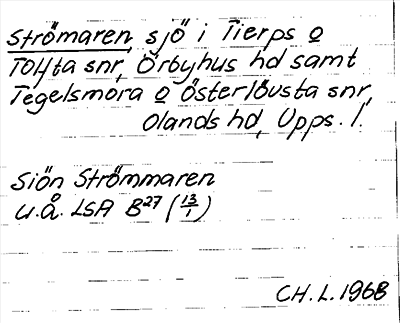 Strömaren, sjö i Tierps o
Tolfta snr, Örbyhus hd samt
Tegelsmora o Österlövsta snr,
Olands hd, Upps. l.
Siön Strömmaren
u.å. LSA B27 (13/1)
CH. L. 1968